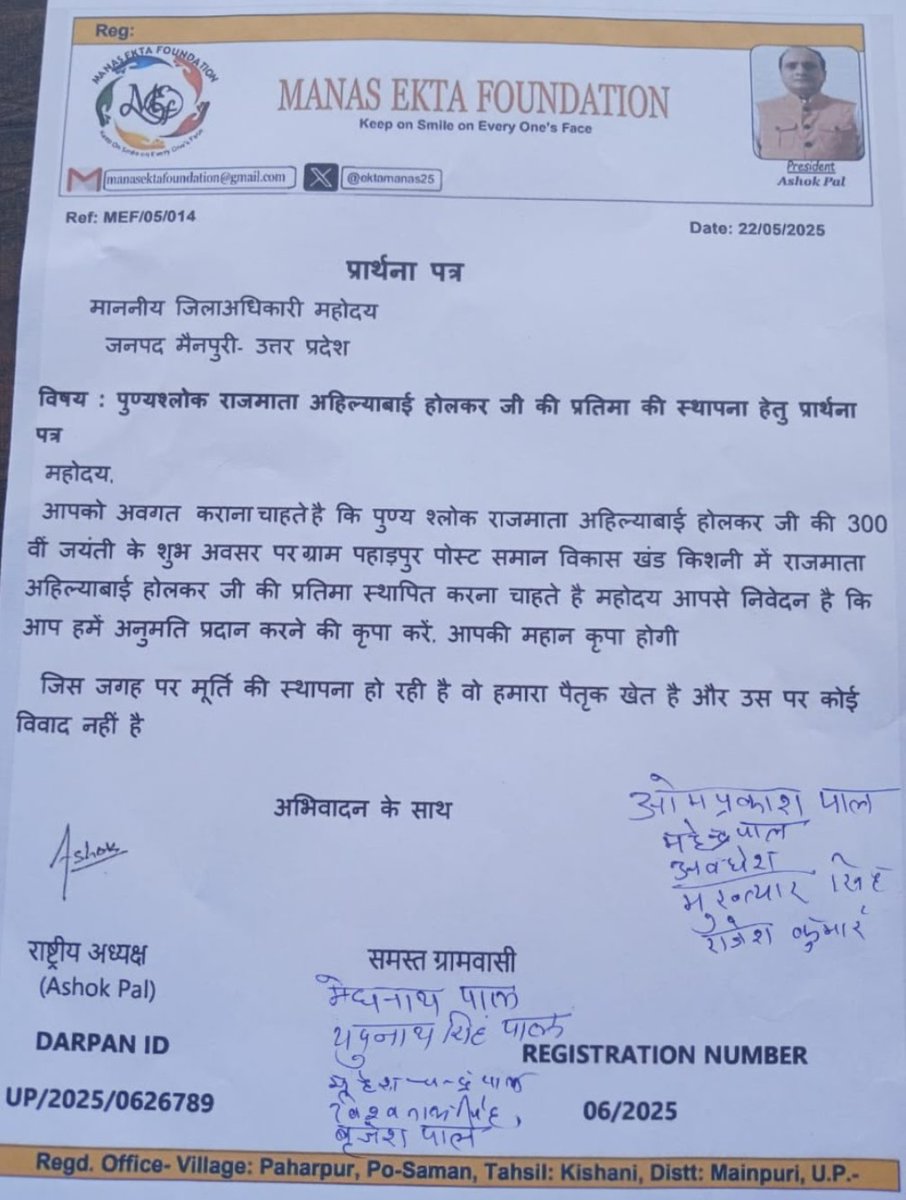 Reg:
MANAS EKTA FOUNDATION
MEF
Keep On Smile on Every One's Face
MANAS EKTA FOUNDATION
Keep on Smile on Every One's Face
President
Ashok Pal
manasektafoundation@gmail.com
@oktamanas25
Ref: MEF/05/014
Date: 22/05/2025
प्रार्थना पत्र
माननीय जिलाअधिकारी महोदय
जनपद मैनपुरी- उत्तर प्रदेश
विषय : पुण्यश्लोक राजमाता अहिल्याबाई होलकर जी की प्रतिमा की स्थापना हेतु प्रार्थना
पत्र
महोदय,
आपको अवगत कराना चाहते है कि पुण्य श्लोक राजमाता अहिल्याबाई होलकर जी की 300
वीं जयंती के शुभ अवसर पर ग्राम पहाड़पुर पोस्ट समान विकास खंड किशनी में राजमाता
अहिल्याबाई होलकर जी की प्रतिमा स्थापित करना चाहते है महोदय आपसे निवेदन है कि
आप हमें अनुमति प्रदान करने की कृपा करें. आपकी महान कृपा होगी
जिस जगह पर मूर्ति की स्थापना हो रही है वो हमारा पैतृक खेत है और उस पर कोई
विवाद नहीं है
अभिवादन के साथ
ओमप्रकाश पाल
महेन्द्रपाल
अवधेश
मुख्त्यार सिंह
राजेश कुमार
Ashok
राष्ट्रीय अध्यक्ष
(Ashok Pal)
समस्त ग्रामवासी
मेघनाथ पाल
यदुनाथ सिंह पाल
बृजेश पाल
DARPAN ID
UP/2025/0626789
REGISTRATION NUMBER
06/2025
Regd. Office- Village: Paharpur, Po-Saman, Tahsil: Kishani, Distt: Mainpuri, U.P.-